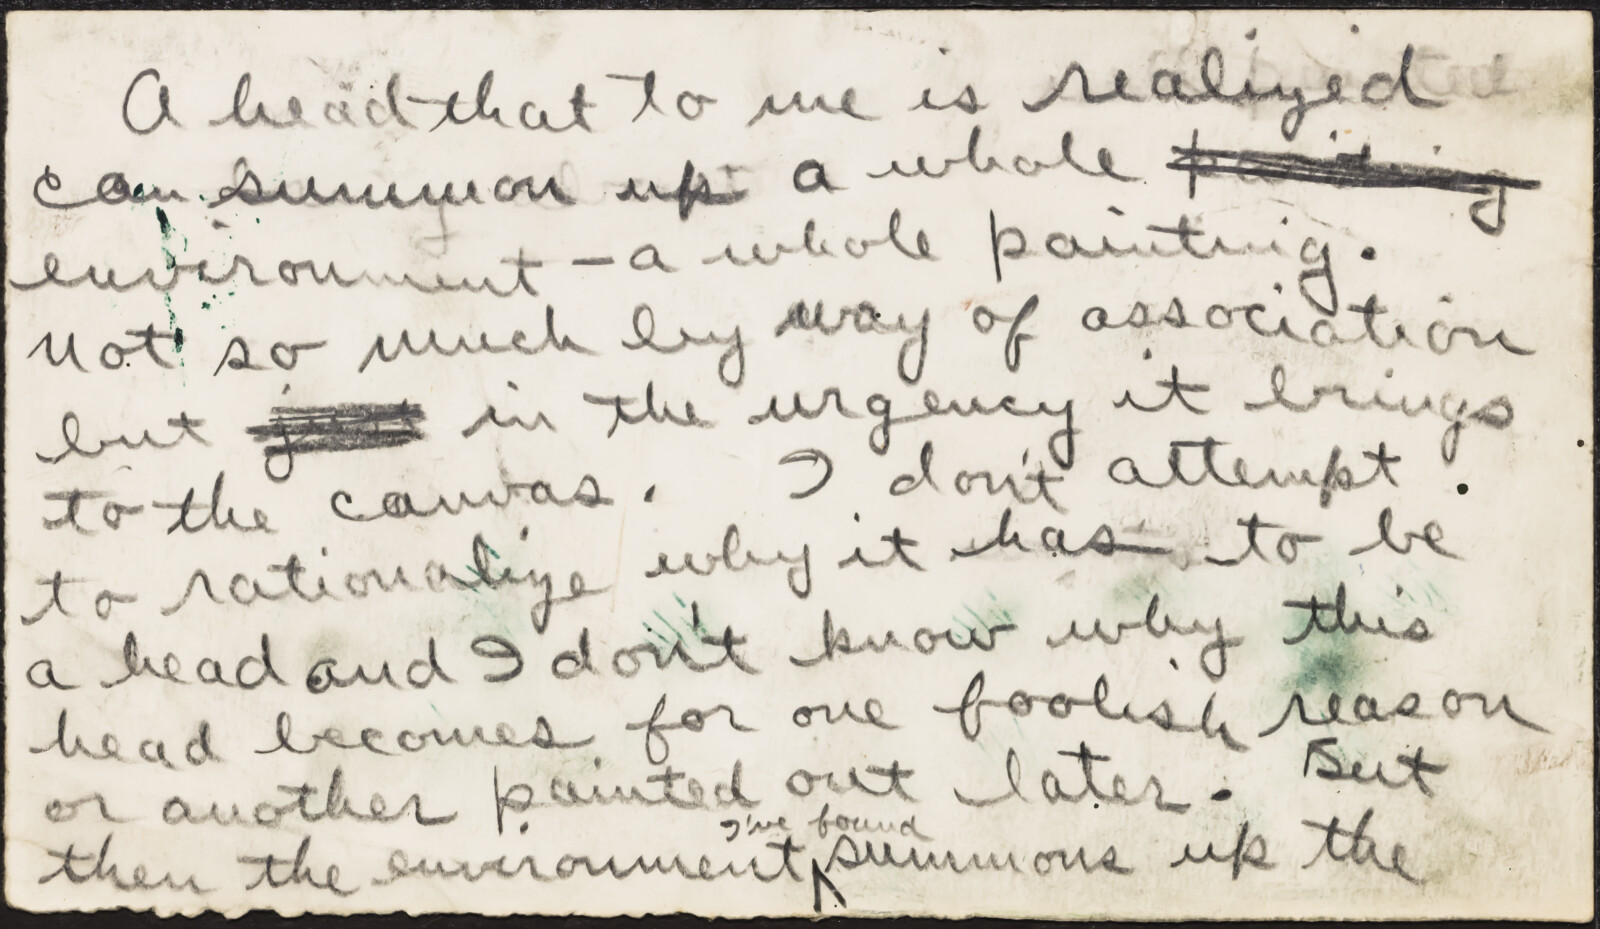 A head that to me is realized
can summon up a whole painting
environment – a whole painting.
Not so much by way of association
but just in the urgency it brings
to the canvas. I don't attempt
to rationalize why it has to be
a head and I don't know why this
head becomes for one foolish reason
or another painted out later. But
I've found
then the environment summons up the